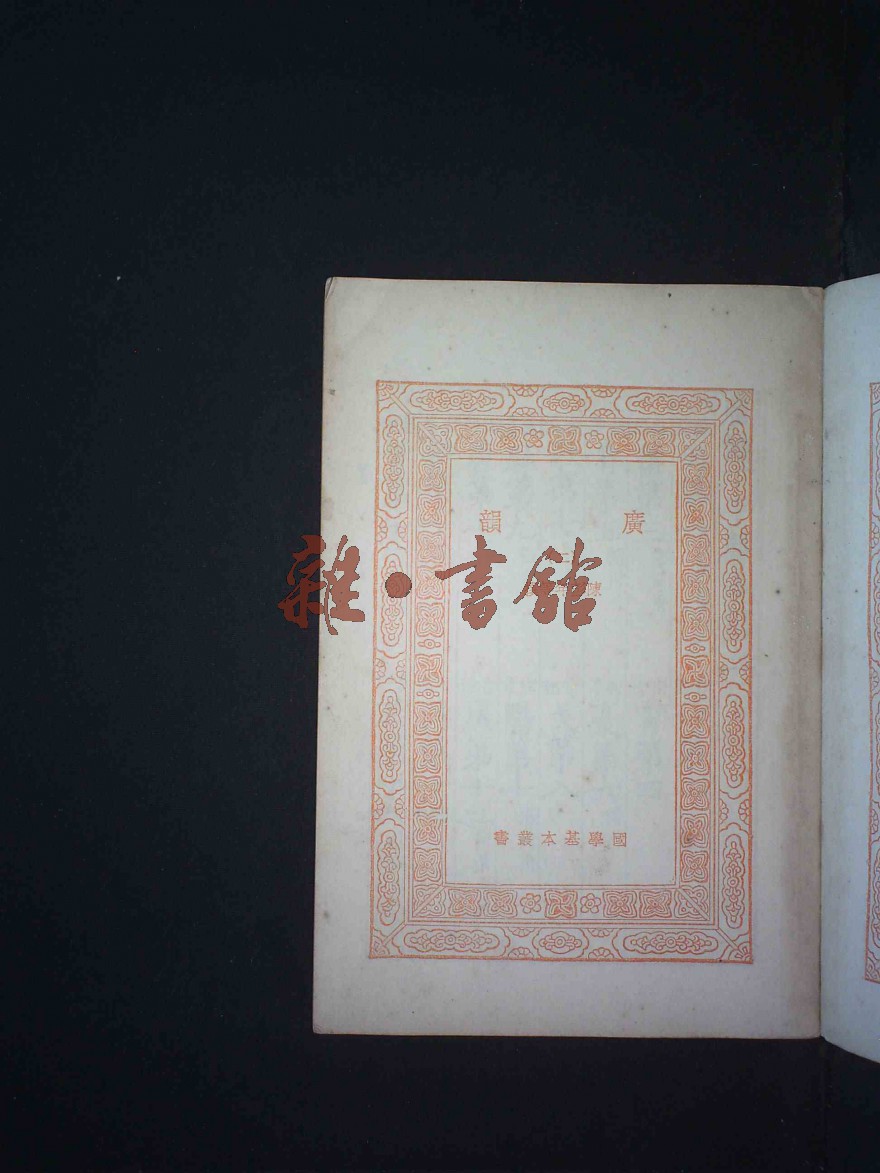 廣韻
陳
國學基本叢書
雜·書館